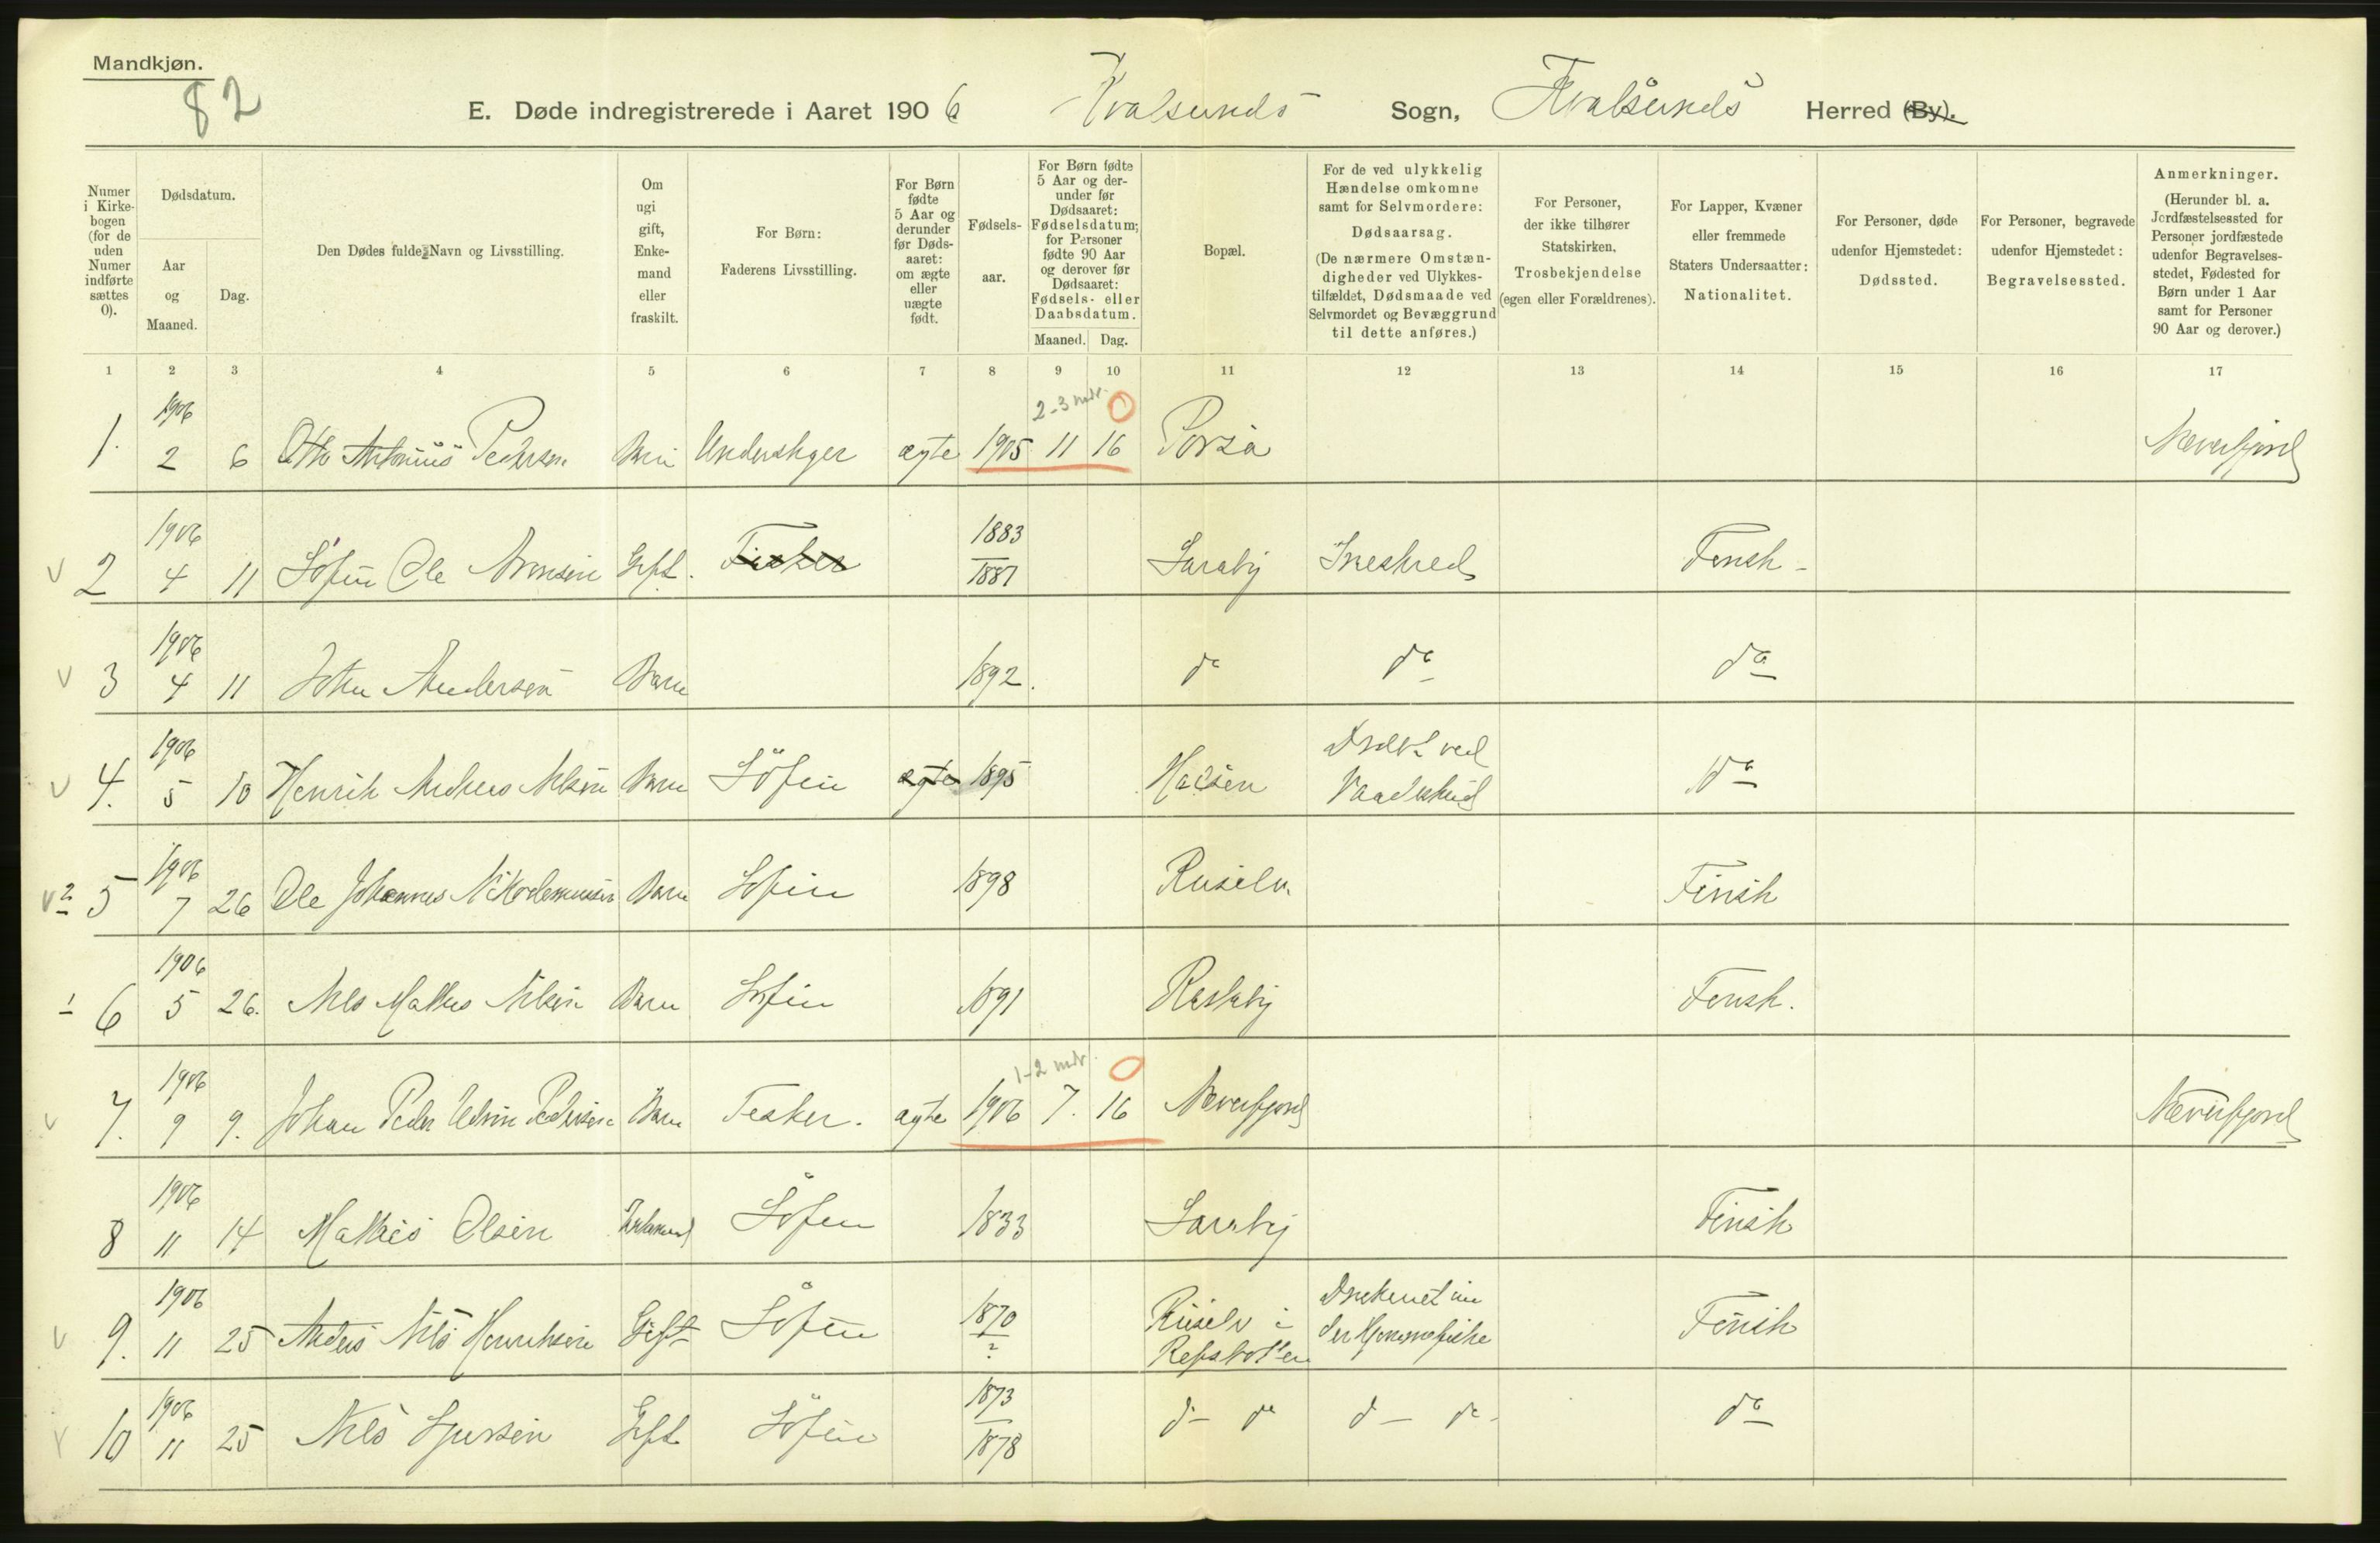 Mandkjøn.
82
E. Døde indregistrerede i Aaret 1906 Kvalsunds Sogn, Kvalsunds Herred (By).
Numer i Kirkebogen (for de uden Numer indførte sættes 0).
Dødsdatum.
Aar og Maaned.
Dag.
Den Dødes fulde Navn og Livsstilling.
Om ugift, gift, Enkemand eller fraskilt.
For Børn: Faderens Livsstilling.
For Børn fødte 5 Aar og derunder før Dødsaaret: om ægte eller uægte født.
Fødselsaar.
For Børn fødte 5 Aar og derunder før Dødsaaret: Fødselsdatum; for Personer fødte 90 Aar og derover før Dødsaaret: Fødsels- eller Daabsdatum.
Maaned. Dag.
Bopæl.
For de ved ulykkelig Hændelse omkomne samt for Selvmordere: Dødsaarsag. (De nærmere Omstændigheder ved Ulykkestilfældet, Dødsmaade ved Selvmordet og Bevæggrund til dette anføres.)
For Personer, der ikke tilhører Statskirken, Trosbekjendelse (egen eller Forældrenes).
For Lapper, Kvæner eller fremmede Staters Undersaatter: Nationalitet.
For Personer, døde udenfor Hjemstedet: Dødssted.
For Personer, begravede udenfor Hjemstedet: Begravelsessted.
Anmerkninger. (Herunder bl. a. Jordfæstelsessted for Personer jordfæstede udenfor Begravelsesstedet, Fødested for Børn under 1 Aar samt for Personer 90 Aar og derover.)
1 2 3 4 5 6 7 8 9 10 11 12 13 14 15 16 17
2-3 mdr. 0
1. 1906 2 6 Otto Antonius Pedersen Barn ægte 1905 11 16 Porsa Neverfjord
v 2 1906 4 11 Søfin Ole Aronsen Gift. Fisker 1883 1887 Saraby Sneskred Finsk -
v 3 1906 4 11 John Andersen Barn 1892. do do do
v 4. 1906 5 10 Henrik Anders Nilsen Barn Søfin ægte 1895 Dræbt ved Vaadeskud do
v 2 5 1906 7 26 Ole Johannes Nikodemussen Barn Søfin 1898 Ruselv. Finsk
1 6 1906 5 26. Nils Mathis Nilsen Barn Søfin 1891 Finsk.
1-2 mdr. 0
v 7. 1906 9 9. Johan Peder Edvin Pedersen Barn Fisker. ægte 1906 7. 16 Neverfjord Neverfjord
8 1906 11 14 Mathis Olsen Enkemand Søfin 1833 Saraby Finsk
v 9. 1906 11 25 Anders Nils Henriksen Gift Søfin 1870 ? Ruselv i Repsbotten Druknet under Hjemmefiske Finsk
v 10 1906 11 25 Nils Gift Søfin 1873 1878 d- do d - do - do